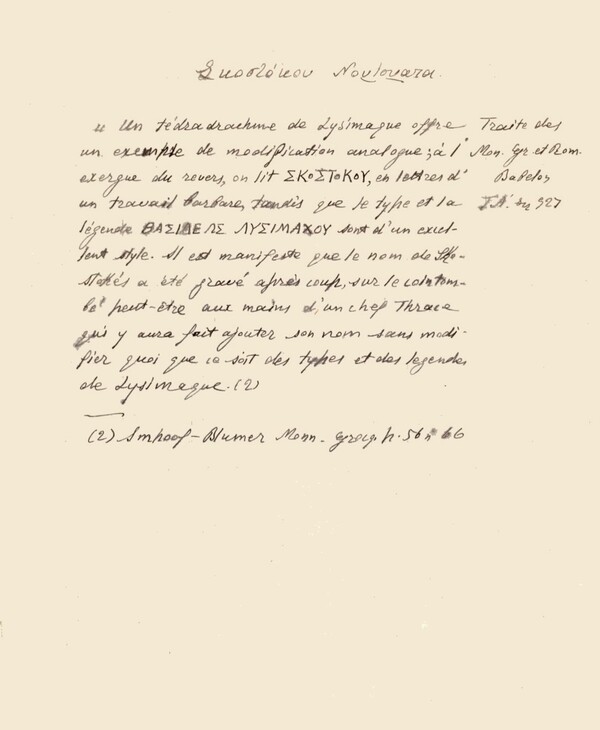 Σκοστόκου Νομίσματα.
" Un tédradrachme de Lysimaque offre
un exemple de modification analogue; à l'
exergue du revers, on lit ΣΚΟΣΤΟΚΟΥ, en lettres d'
un travail barbare, tandis que le type et la
légende ΒΑΣΙΛΕΩΣ ΛΥΣΙΜΑΧΟΥ sont d'un excel-
lent style. Il est manifeste que le nom de Sko-
stokés a été gravé après coup, sur le coin tom-
bé peut-être aux mains d'un chef Thrace
qui y aura fait ajouter son nom sans modi-
fier quoi que ce soit des types et des legendes
de Lysimaque. (2)
Traite des
Mon. Gr. et Rom.
Babelon
(2) Imhoof-Blumer Monn. grecq. p. 56 n° 66